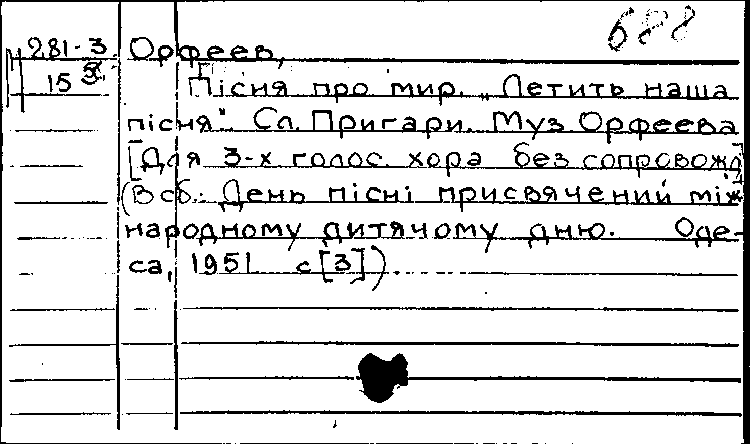 688
М 281-3 Орфеев,
15 Пісня про мир. „Летить наша
пісня". Сл. Пригари. Муз Орфеева
[Для 3-х голос. хора без сопровожд]
(В сб.: День пісні присвячений між
народному дитячому дню. Оде-
са, 1951 с [3]).